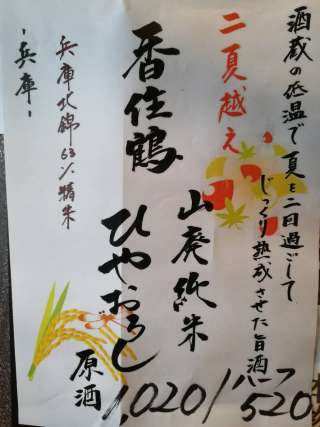 酒蔵の低温で夏を二回過ごして
じっくり熟成させた旨酒
二夏越え
山廃純米
香住鶴
ひやおろし
原酒
兵庫北錦63%精米
-兵庫-
1,020/ハーフ520